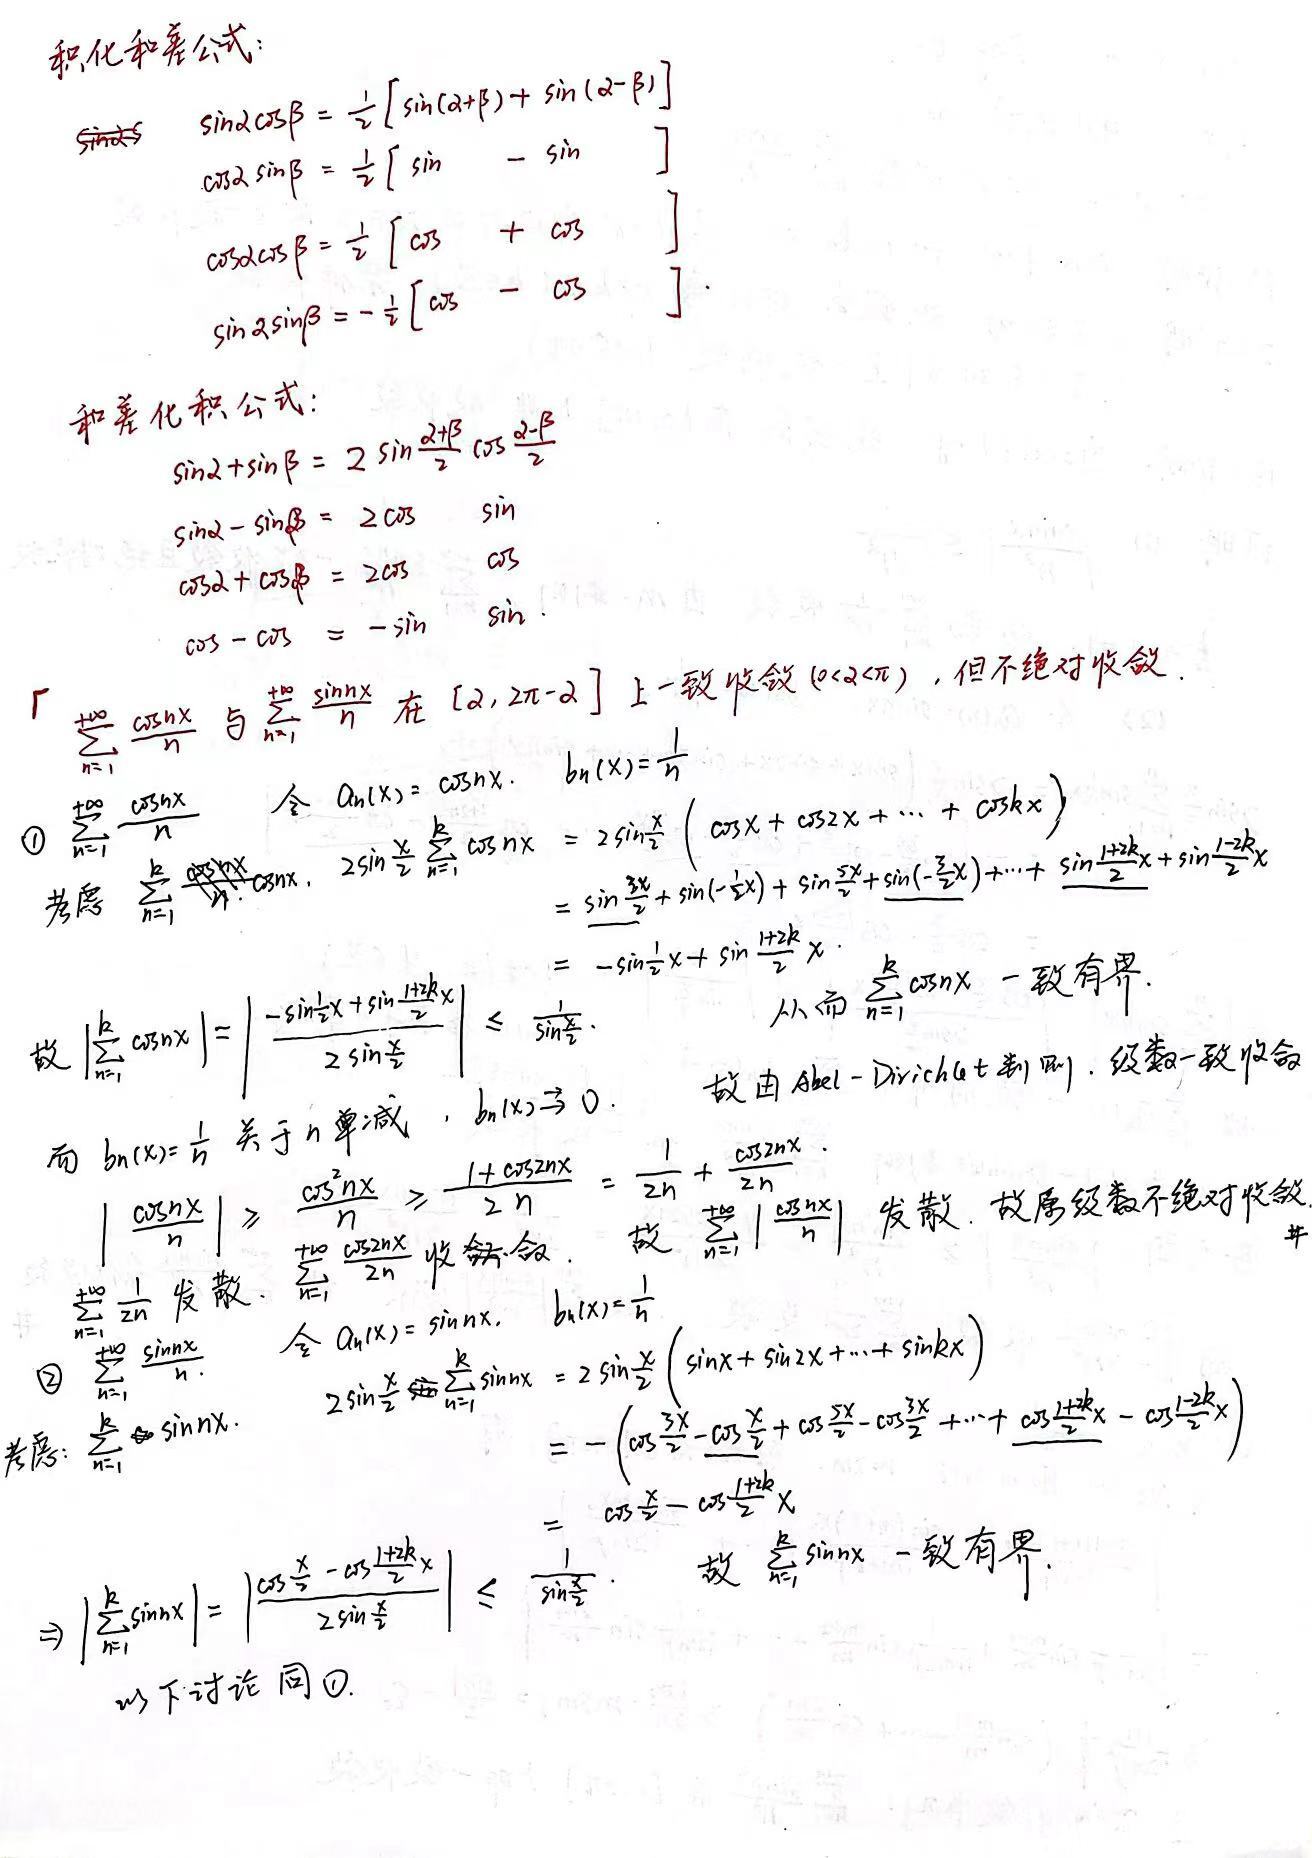 积化和差公式:
sinαcosβ = 1/2 [sin(α+β) + sin(α-β)]
cosα sinβ = 1/2 [ sin - sin ]
cosαcosβ = 1/2 [ cos + cos ]
sinαsinβ = -1/2 [ cos - cos ].
和差化积公式:
sinα+sinβ = 2 sin (α+β)/2 cos (α-β)/2
sinα - sinβ = 2cos sin
cosα + cosβ = 2cos cos
cos - cos = -sin sin.
「 ∑_{n=1}^{+∞} cosnx/n 与 ∑_{n=1}^{+∞} sinnx/n 在 [α, 2π-α] 上一致收敛 (0<α<π), 但不绝对收敛.
① ∑_{n=1}^{+∞} cosnx/n 令 an(x) = cosnx. bn(x) = 1/n
考虑 ∑_{n=1}^{k} cosnx. 2sin x/2 ∑_{n=1}^{k} cosnx = 2sin x/2 ( cosx + cos2x + ⋯ + coskx )
= sin 3x/2 + sin(-1/2 x) + sin 5x/2 + sin(-3/2 x) + ⋯ + sin (1+2k)/2 x + sin (1-2k)/2 x
= -sin 1/2 x + sin (1+2k)/2 x.
故 |∑_{n=1}^{k} cosnx| = | (-sin 1/2 x + sin (1+2k)/2 x) / (2 sin x/2) | ≤ 1/(sin x/2). 从而 ∑_{n=1}^{k} cosnx 一致有界.
而 bn(x) = 1/n 关于 n 单减, bn(x) ⇉ 0. 故由 Abel-Dirichlet 判别, 级数一致收敛
| cosnx/n | ≥ cos²nx/n ≥ (1+cos2nx)/2n = 1/2n + cos2nx/2n.
∑_{n=1}^{+∞} 1/2n 发散. ∑_{n=1}^{+∞} cos2nx/2n 收敛. 故 ∑_{n=1}^{+∞} | cosnx/n | 发散. 故原级数不绝对收敛. #
② ∑_{n=1}^{+∞} sinnx/n. 令 an(x) = sinnx. bn(x) = 1/n
考虑: ∑_{n=1}^{k} sinnx. 2sin x/2 ∑_{n=1}^{k} sinnx = 2 sin x/2 ( sinx + sin2x + ⋯ + sinkx )
= -( cos 3x/2 - cos x/2 + cos 5x/2 - cos 3x/2 + ⋯ + cos (1+2k)/2 x - cos (1-2k)/2 x )
= cos x/2 - cos (1+2k)/2 x
⇒ |∑_{n=1}^{k} sinnx| = | (cos x/2 - cos (1+2k)/2 x) / (2 sin x/2) | ≤ 1/(sin x/2). 故 ∑_{n=1}^{k} sinnx 一致有界.
以下讨论同①.